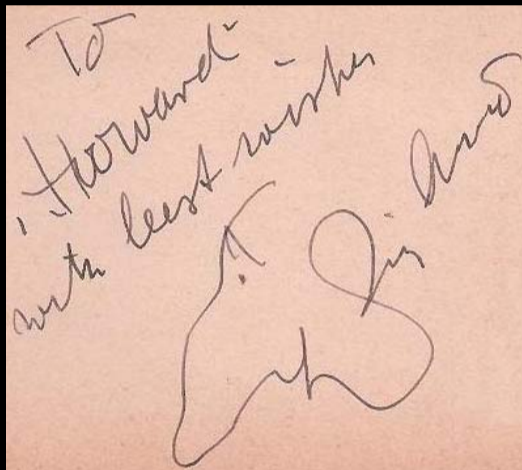 To
"Howard"
with best wishes